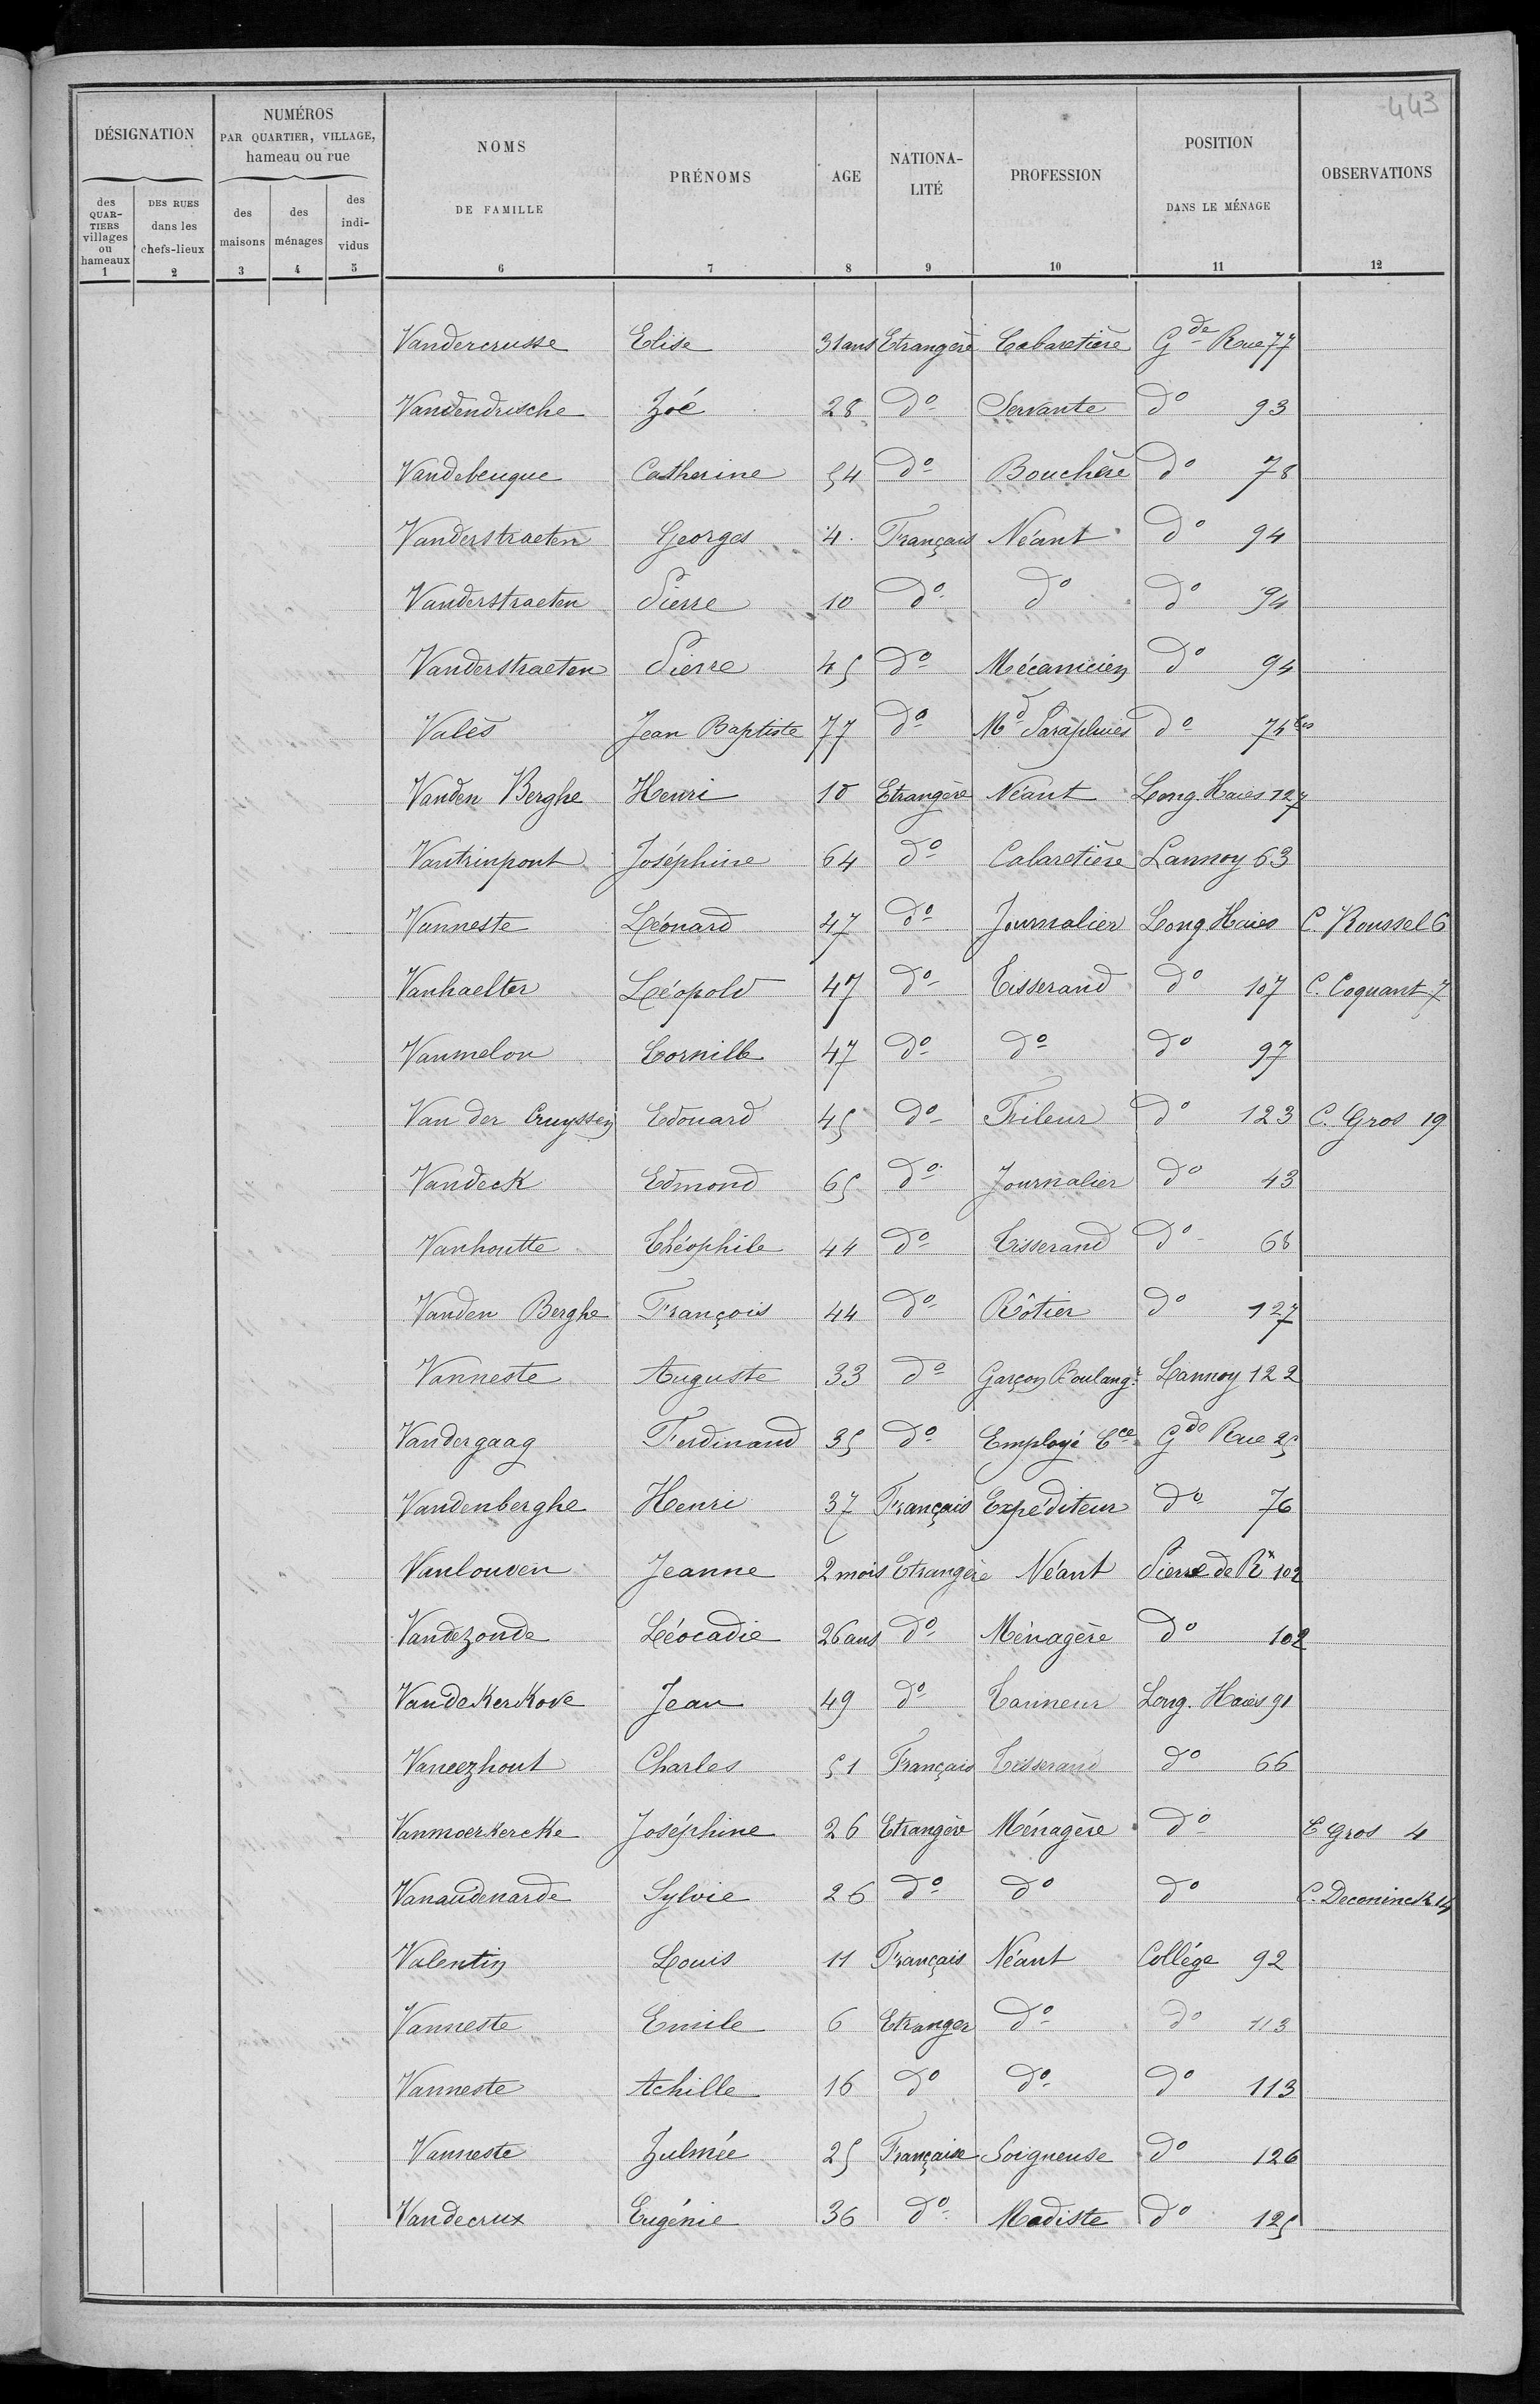 443
DÉSIGNATION
NUMÉROS
PAR QUARTIER, VILLAGE,
hameau ou rue
NOMS
DE FAMILLE
PRÉNOMS
AGE
NATIONA-
LITÉ
PROFESSION
POSITION
DANS LE MÉNAGE
OBSERVATIONS
des
QUAR-
TIERS
villages
ou
hameaux
DES RUES
dans les
chefs-lieux
des
maisons
des
ménages
des
indi-
vidus
1 2 3 4 5 6 7 8 9 10 11 12
Vandercrusse Elise 31 ans Etrangère Cabaretière Gde Rue 77
Vandendrische Zoé 28 do Servante do 93
Vandebeugue Catherine 54 do Bouchère do 78
Vanderstraeten Georges 4 Français Néant do 94
Vanderstraeten Pierre 10 do do do 94
Vanderstraeten Pierre 45 do Mécanicien do 94
Valès Jean Baptiste 77 do Md Parapluies do 74bis
Vanden Berghe Henri 10 Etrangère Néant Long. Haies 127
Vantrinpont Joséphine 64 do Cabaretière Lannoy 63
Vanneste Léonard 47 do Journalier Long Haies C. Roussel 6
Vanhaelter Léopold 47 do Tisserand do 107 C. Coquant 7
Vanmelon Cornille 47 do do do 97
Van der Cruyssen Edouard 45 do Fileur do 123 C. Gros 19
Vandeck Edmond 65 do Journalier do 43
Vanhoutte Théophile 44 do Tisserand do 68
Vanden Berghe François 44 do Rôtier do 127
Vanneste Auguste 33 do Garçon Boulangr Lannoy 122
Vandergaag Ferdinand 35 do Employé Cce Gde Rue 25
Vandenberghe Henri 37 Français Expéditeur do 76
Vanlouven Jeanne 2 mois Etrangère Néant Pierre de Rx 102
Vandezonde Léocadie 26 ans do Ménagère do 102
VandeKerKove Jean 49 do Tanneur Long. Haies 91
Vaneezhout Charles 51 Français Tisserand do 66
Vanmoerkercke Joséphine 26 Etrangère Ménagère do C Gros 4
Vanaudenarde Sylvie 26 do do do C. Deconinck 14
Valentin Louis 11 Français Néant Collége 92
Vanneste Emile 6 Etranger do do 113
Vanneste Achille 16 do do do 113
Vanneste Zulmée 25 Française Soigneuse do 126
Vandecrux Eugénie 36 do Modiste do 125